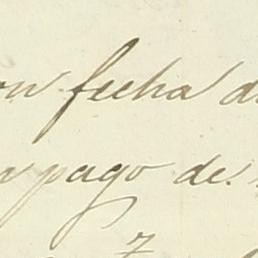 on fecha d
a pago de